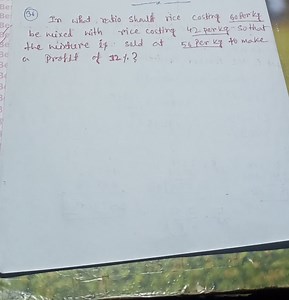 In what ratio should rice costing 60 Per kg
be mixed with rice costing 42 per kg so that
the mixture is sold at 56 Per kg to make
a Profit of 12%?